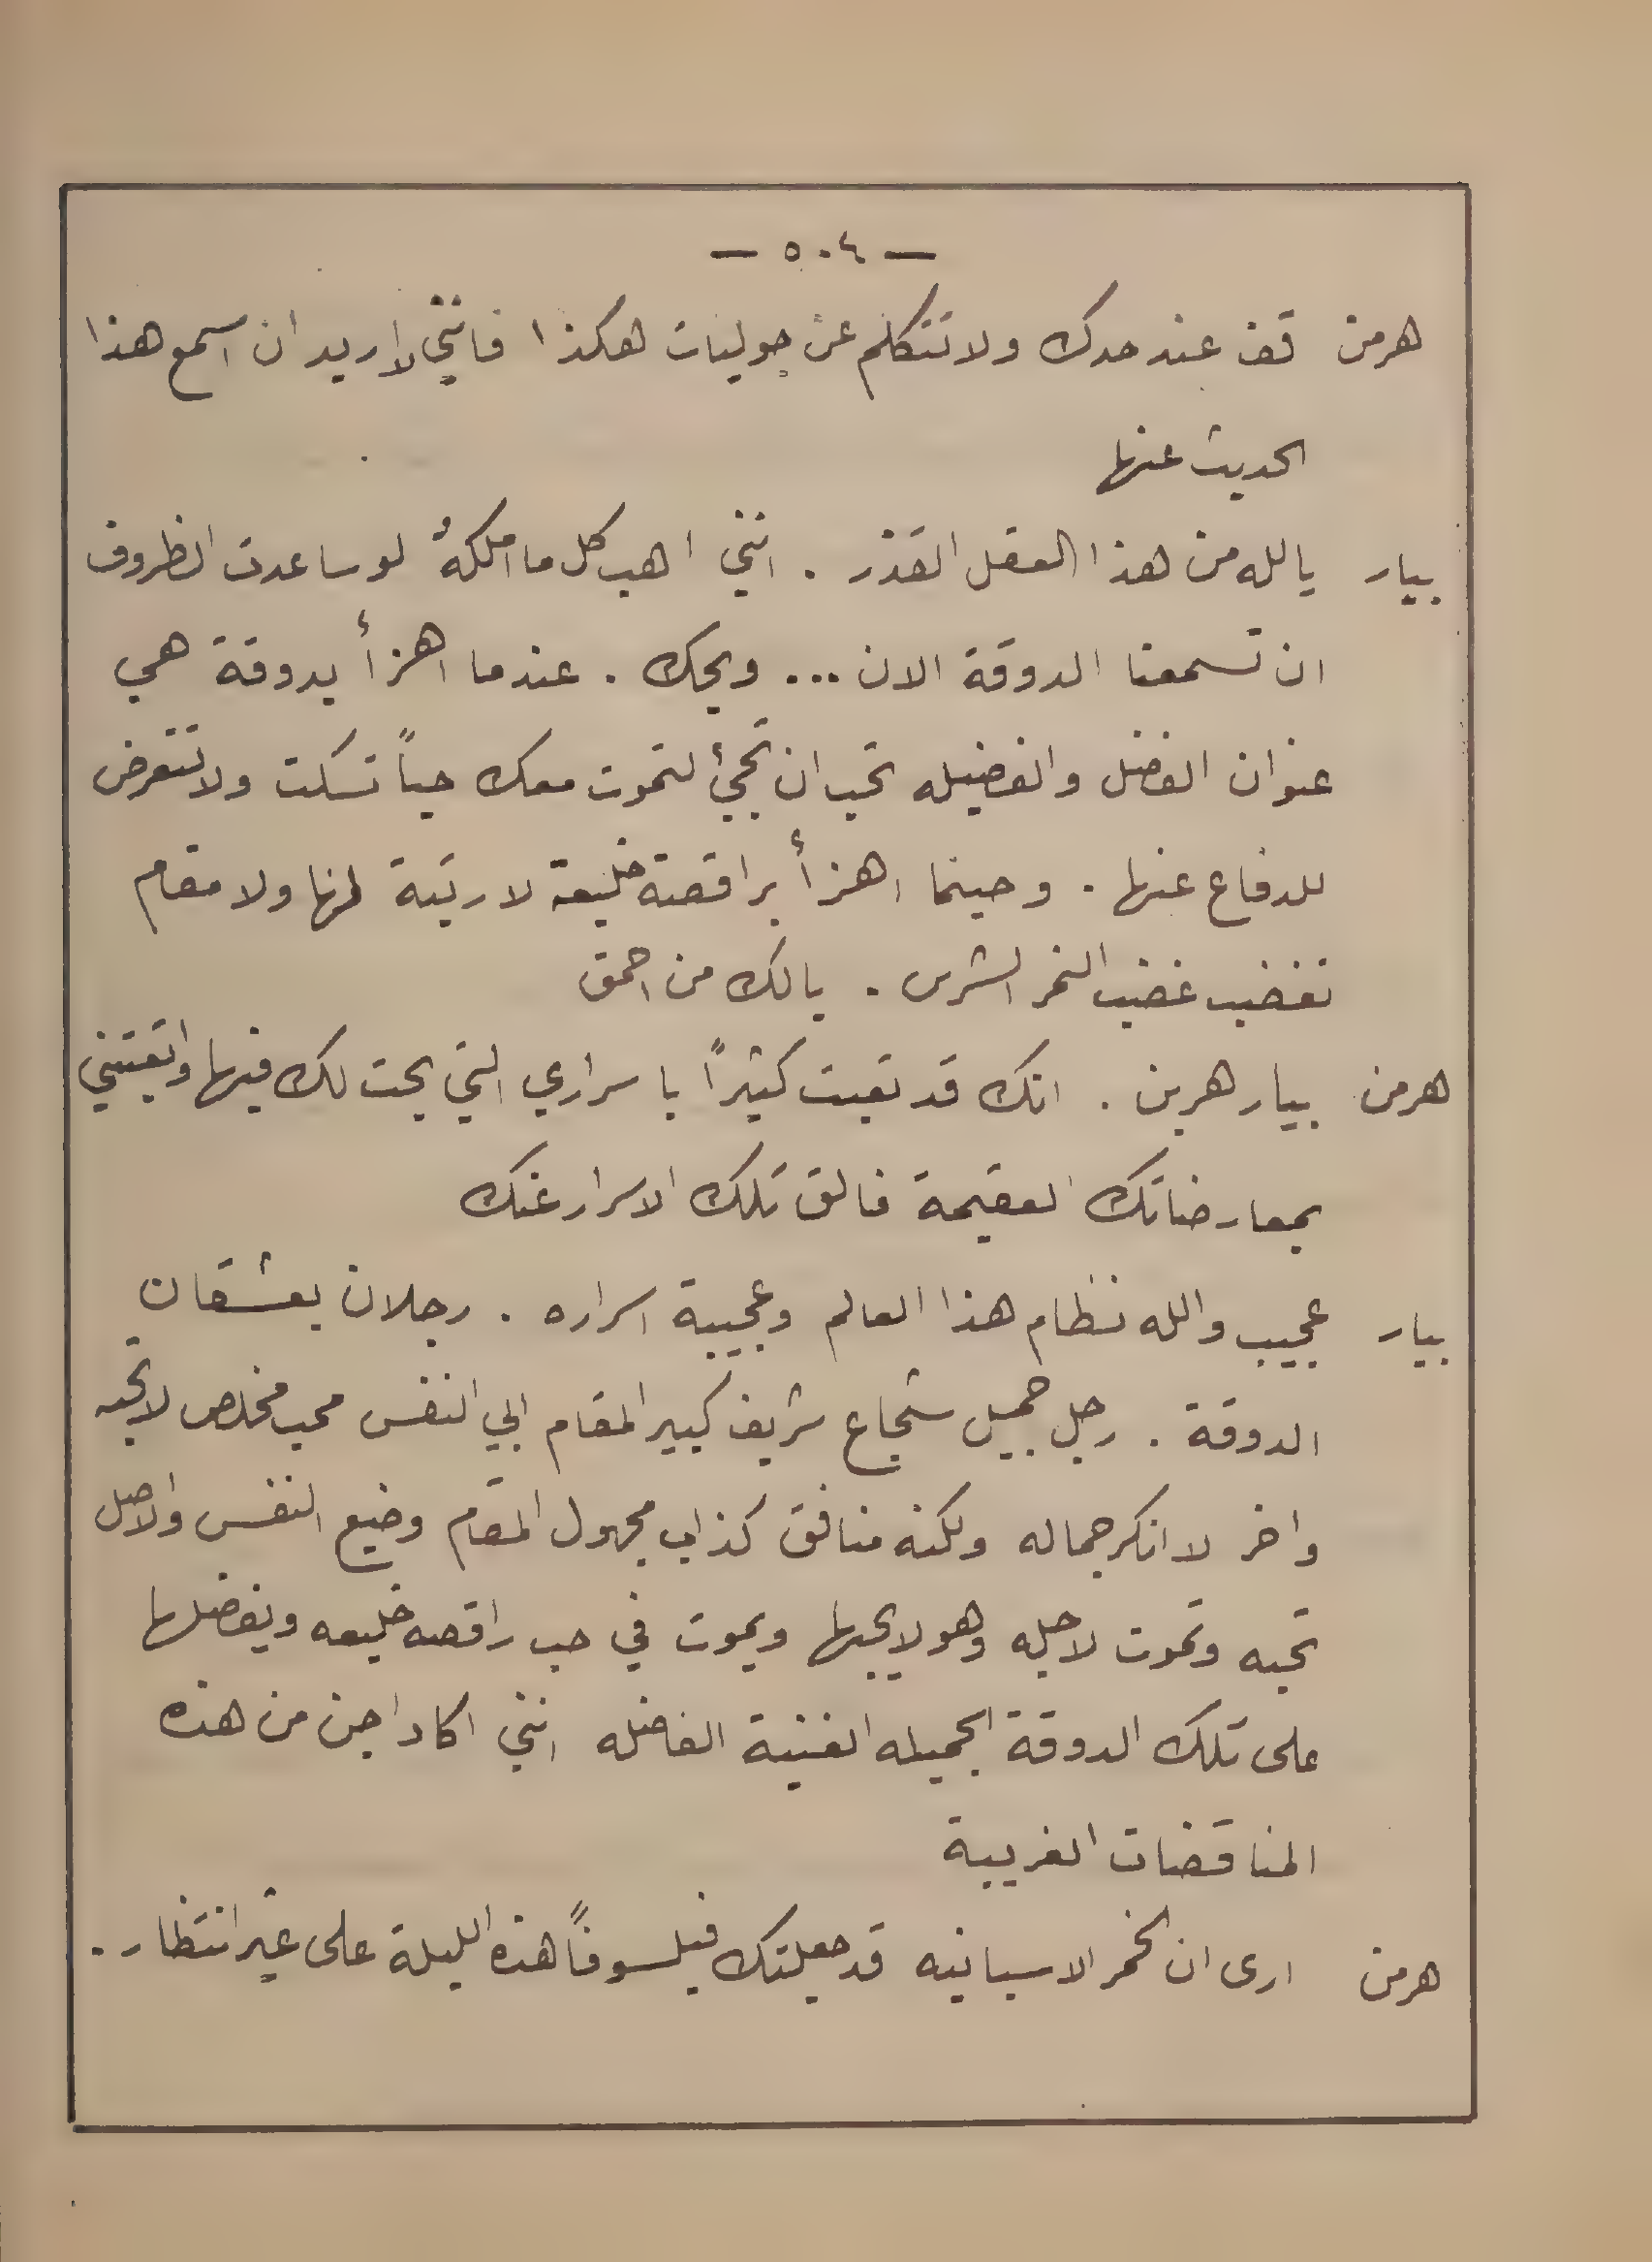 — ٥٠٤ —
هرمن قف عند حدك ولا تتكلم عن جوليات هكذا فانني لا اريد ان اسمع هذا
الحديث عنها
بيار يالله من هذا العقل القذر . انني اهب كل ما املكهُ لو ساعدت الظروف
ان تسمعنا الدوقة الان ... ويحك . عندما اهزأ بدوقة هي
عنوان الفضل والفضيله تحب ان تجيئ لتموت معك حباً تسكت ولا تتعرض
للدفاع عنها . وحينما اهزأ براقصة خليعة لا ريبة لها ولا مقام
تغضب غضب النمر الشرس . يالك من احمق
هرمن بيار هربن . انك قد تعبت كثيراً باسراري التي بحت لك فيها واتعبتني
بمعارضاتك العقيمة فالق تلك الاسرار عنك
بيار عجيب والله نظام هذا العالم وعجيبة اسراره . رجلان يعشقان
الدوقة . رجل جميل شجاع شريف كبير المقام ابي النفس محب مخلص لا تحبه
واخر لا انكر جماله ولكنه منافق كذاب مجهول المقام وضيع النفس والاصل
تحبه وتموت لاجله وهو لا يحبها ويموت في حب راقصه خليعه ويفضلها
على تلك الدوقة الجميله الغنية الفاضله انني اكاد اجن من هذه
المناقضات الغريبة
هرمن ارى ان الخمر الاسبانيه قد جعلتك فيلسوفاً هذه الليلة على غير انتظار .